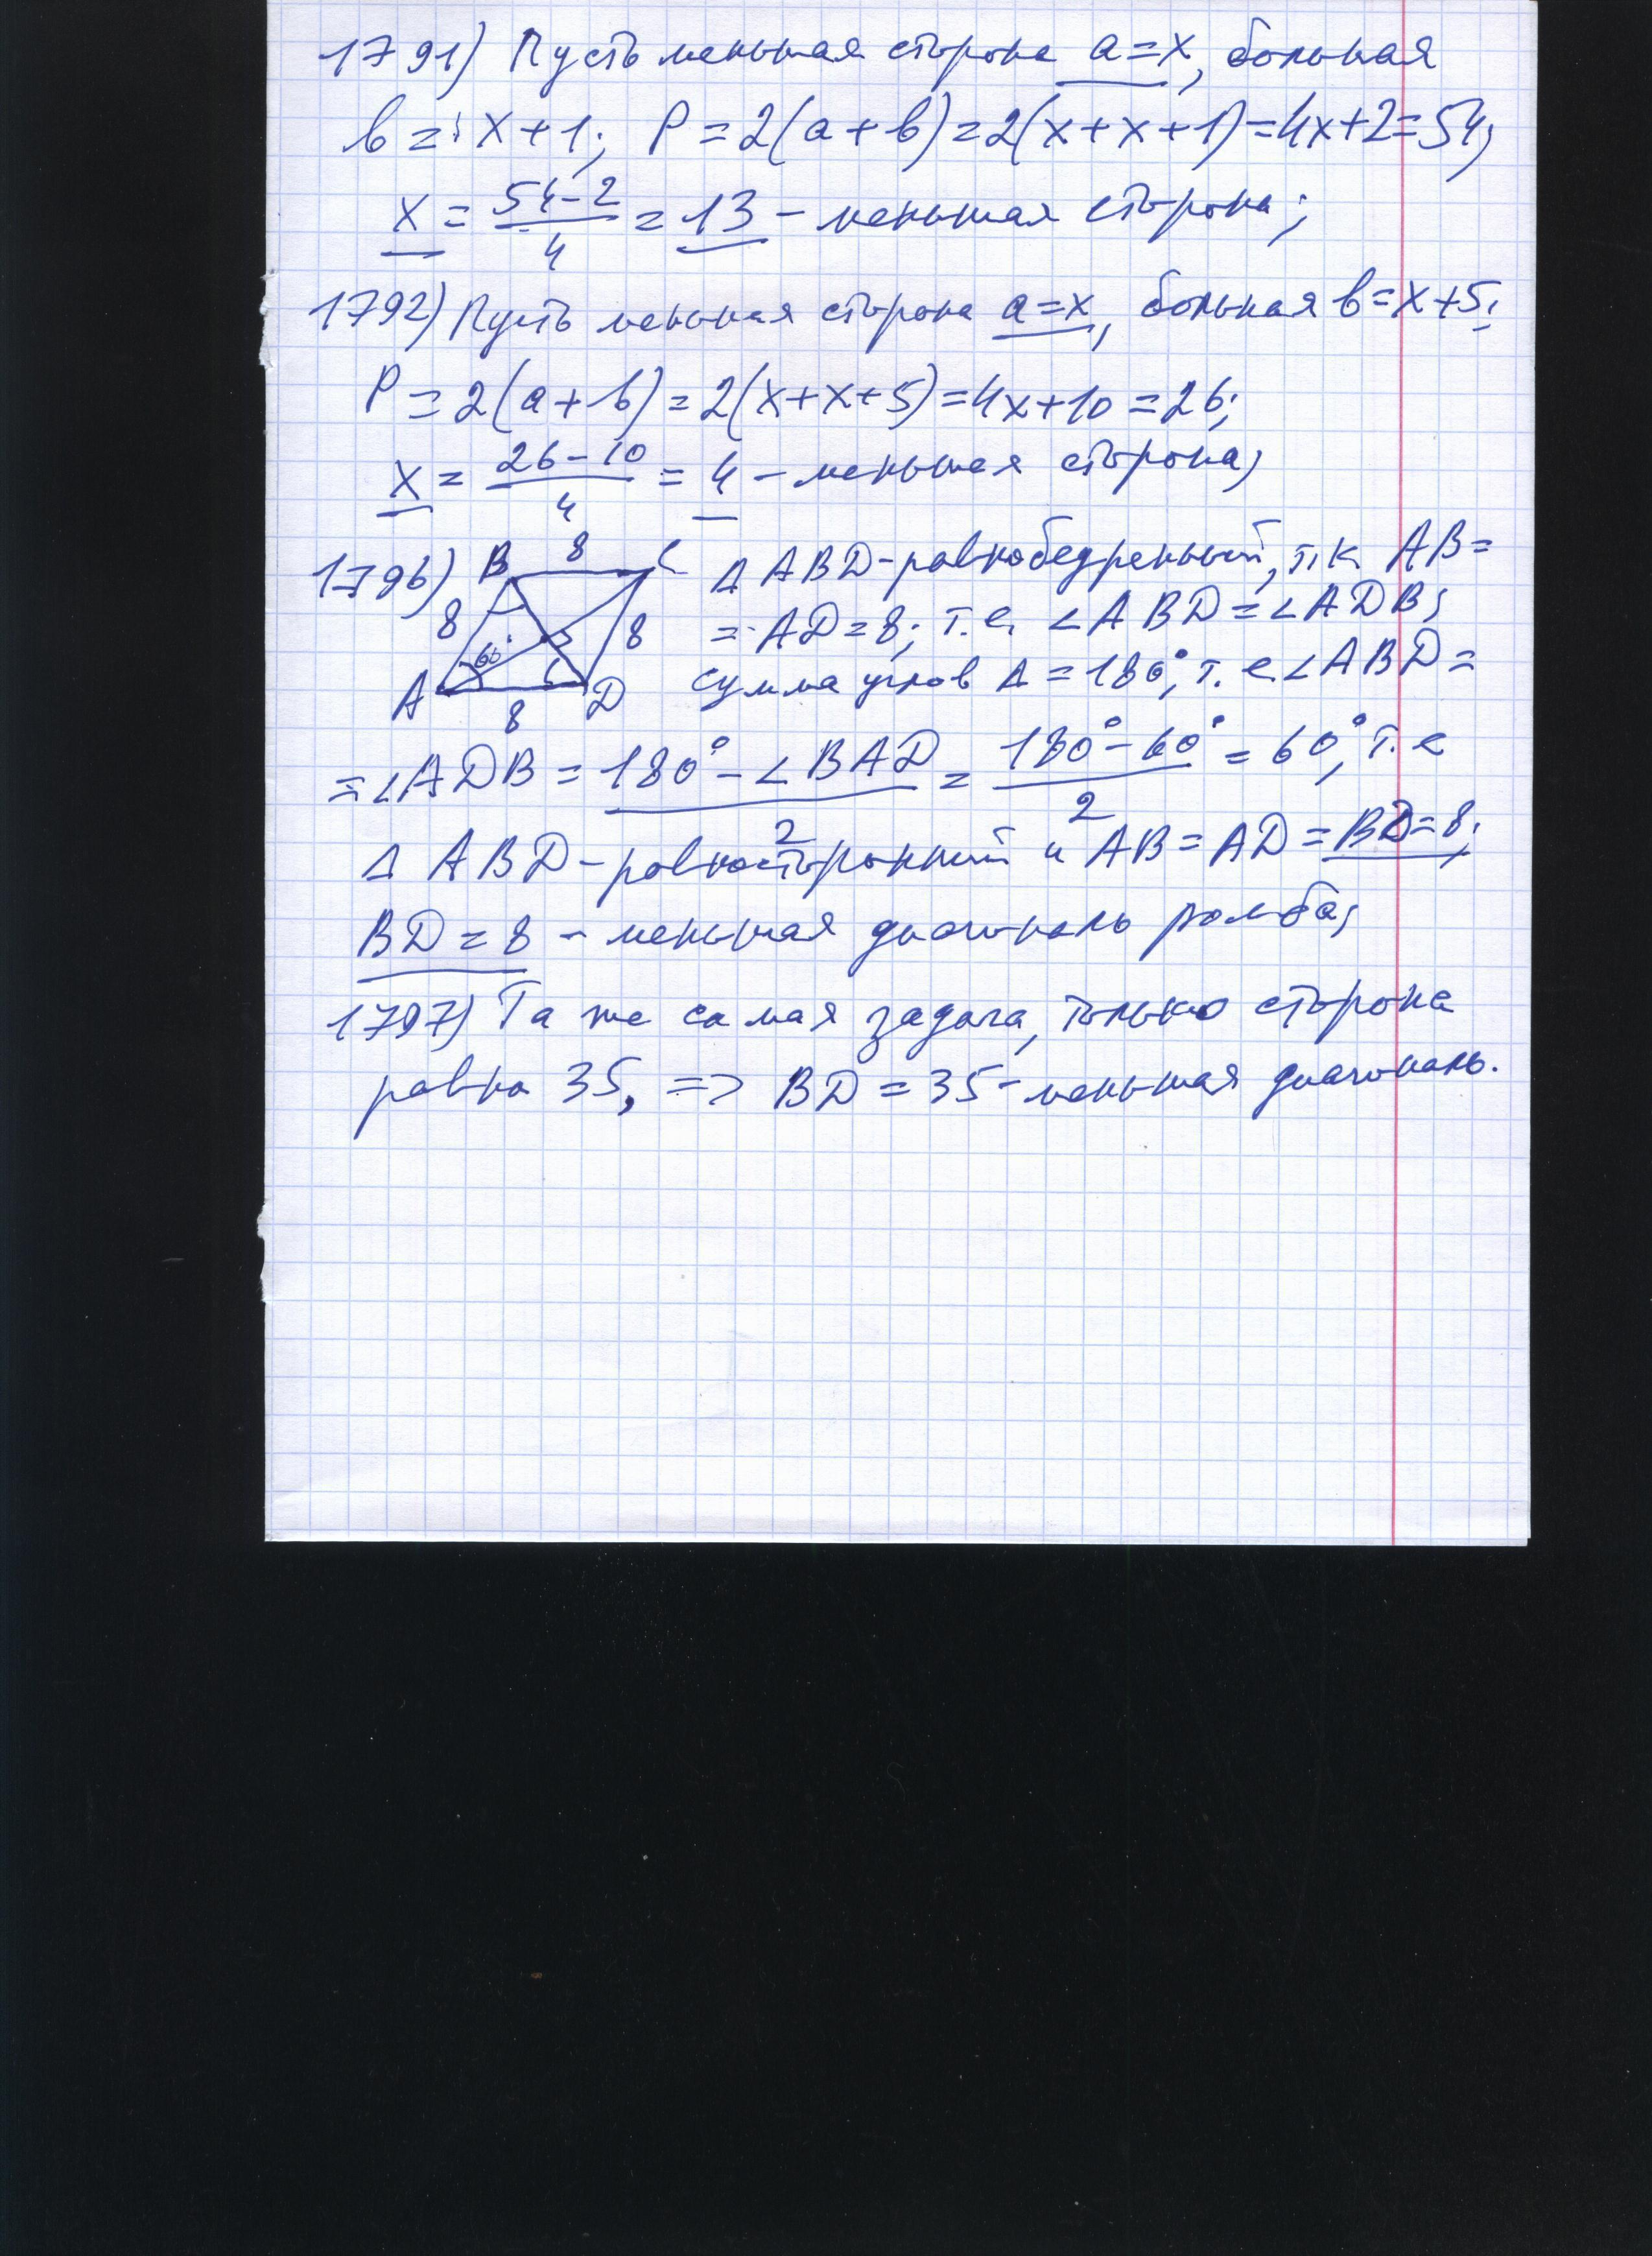 1791) Пусть меньшая сторона a=x, большая
b = x+1; P = 2(a+b)=2(x+x+1)=4x+2=54;
x = 54-2/4 = 13 - меньшая сторона;
1792) Пусть меньшая сторона a=x, большая b=x+5;
P = 2(a+b) = 2(x+x+5)=4x+10=26;
x = 26-10/4 = 4 - меньшая сторона;
1796) B 8 C
8 60° 8
A 8 D
Δ ABD-равнобедренный, т.к. AB=
= AD=8; т.е. ∠ABD=∠ADB;
сумма углов Δ=180°, т.е. ∠ABD=
=∠ADB = 180°-∠BAD/2 = 180°-60°/2 = 60°, т.е
Δ ABD-равносторонний и AB=AD=BD=8;
BD=8 - меньшая диагональ ромба;
1797) Та же самая задача, только сторона
равна 35, => BD=35-меньшая диагональ.